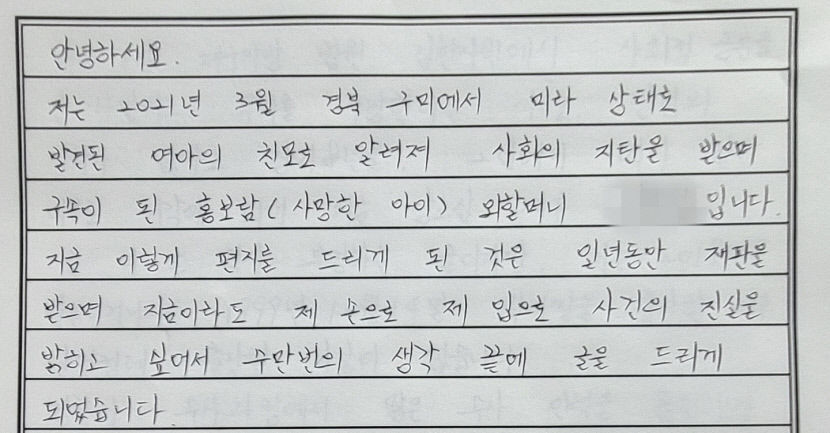 안녕하세요.
저는 2021년 3월 경북 구미에서 미라 상태로
발견된 여아의 친모로 알려져 사회의 지탄을 받으며
구속이 된 홍보람(사망한 아이) 외할머니 입니다.
지금 이렇게 편지를 드리게 된 것은 일년동안 재판을
받으며 지금이라도 제 손으로 제 입으로 사건의 진실을
밝히고 싶어서 수만번의 생각 끝에 글을 드리게
되었습니다.